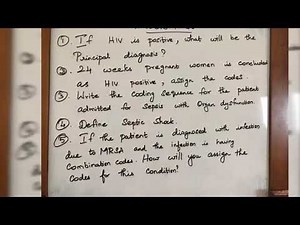 ① If HIV is positive, what will be the
Principal diagnosis?
②. 24 weeks pregnant women is concluded
as HIV positive - assign the codes.
③. Write the coding sequence for the patient
admitted for Sepsis with Organ dysfunction.
④ Define Septic Shock.
⑤ If the patient is diagnosed with infection
due to MRSA and the infection is having
Combination codes. How will you assign the
Codes for this condition?